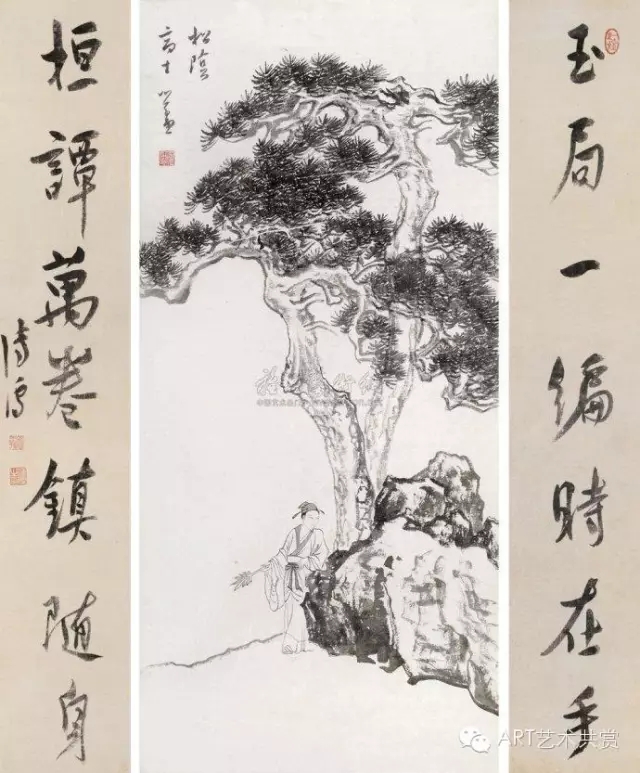 玉局一編時在手
松陰
高士 心畬
桓譚萬卷鎮随身
溥儒
ART艺术共赏